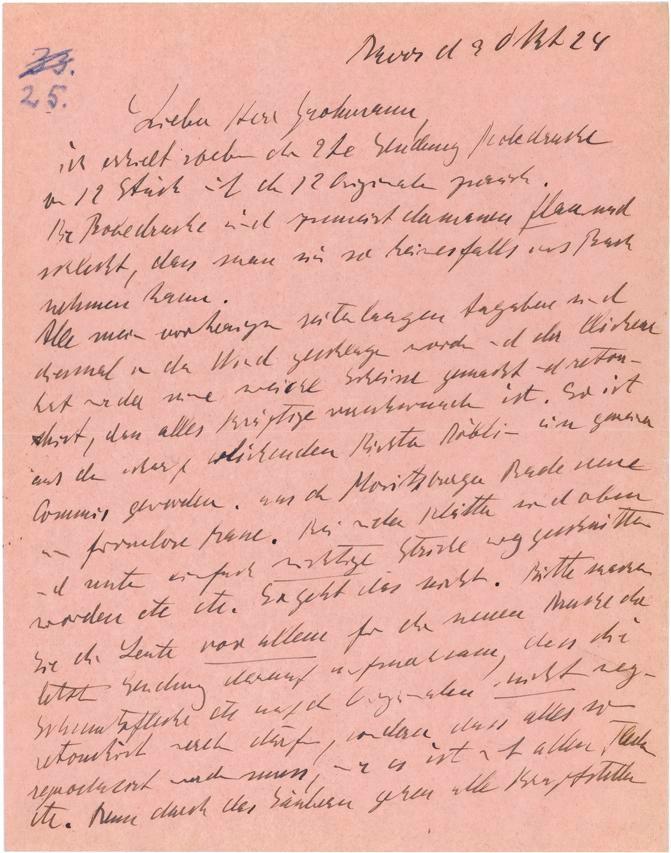 25.
25.
Davos d 2 Okt 24
Lieber Herr Grohmann,
ich erhielt soeben die 2te Sendung Probedrucke
von 12 Stück mit den 12 Originalen zurück.
Die Probedrucke sind zumeist dermassen flau und
schlecht, dass man sie so keinesfalls ins Buch
nehmen kann.
Alle meine vorherigen seitenlangen Angaben sind
diesmal in den Wind geschlagen worden und der Clicheur
hat wieder seine weiche Scheisse gemacht und retou-
chiert, dass alles Kräftige verschwunden ist. So ist
aus dem scharf blickenden ein gemeiner
Commis geworden. Aus der Moritzburger Badenden
eine formlose Masse. Bei vielen Blättern sind oben
und unten einfach wichtige Stücke weggeschnitten
worden etc etc. So geht das nicht. Bitte machen
Sie die Leute vor allem für die neuen Drucke der
letzten Sendung darauf aufmerksam, dass die
Schmutzflecke etc auf den Originalen nicht weg-
retouchiert werden dürfen, sondern dass alles so
reproduziert werden muss, wie es ist mit allen Flecken
etc. Denn durch das Säubern gehen alle Kraftstellen